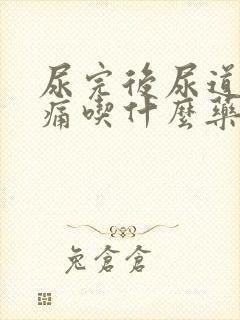 尿完後尿道
痛喫什麼藥
兔倉倉